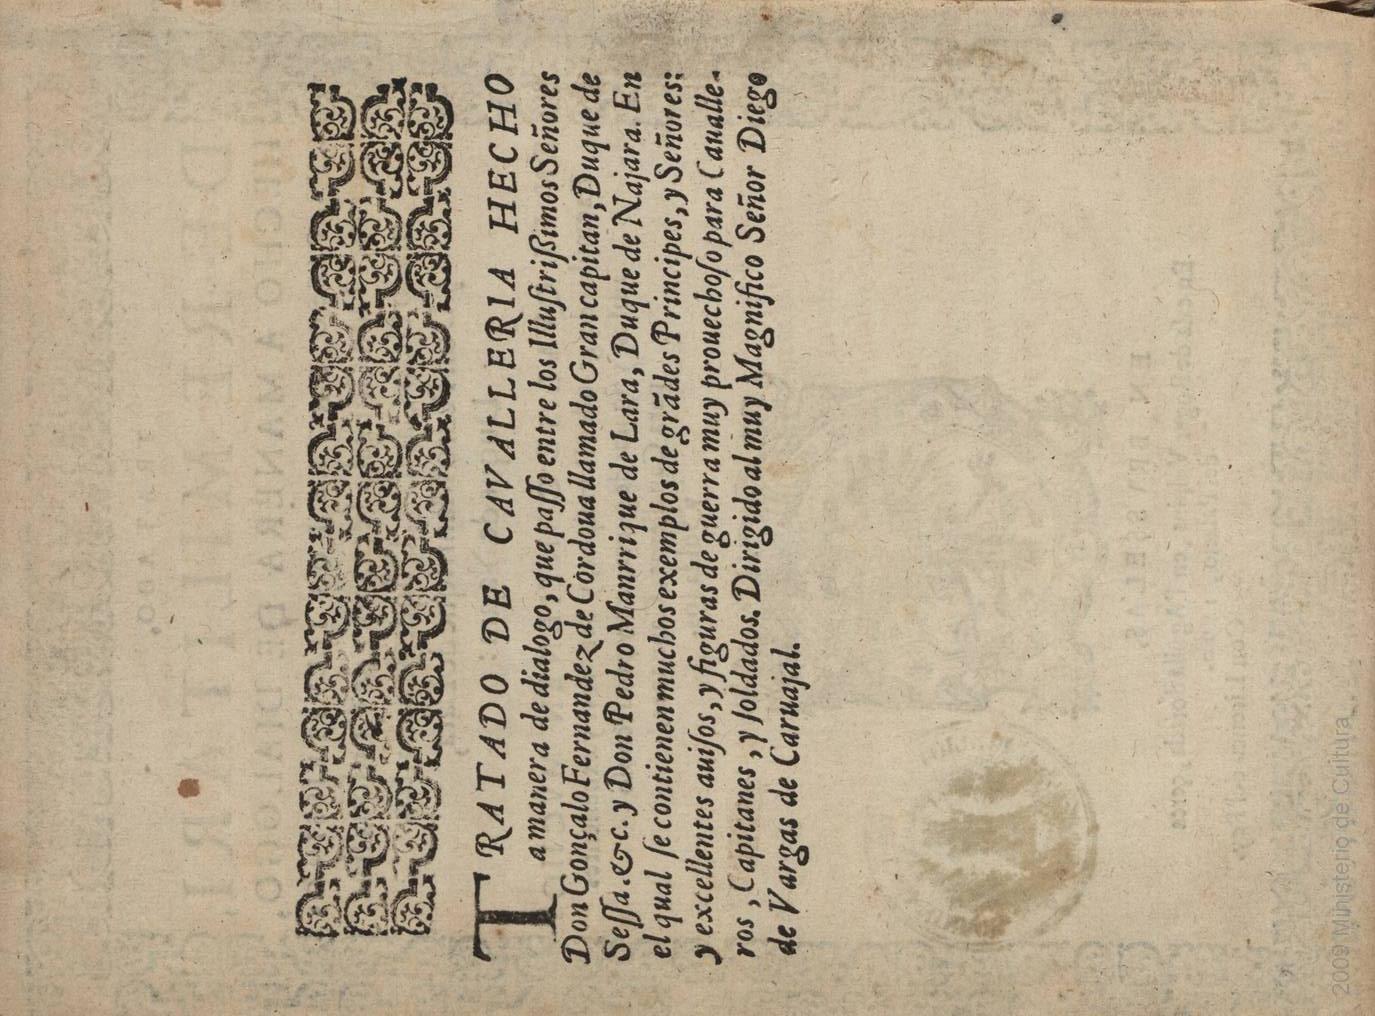 TRATADO DE CAVALLERIA HECHO
a manera de dialogo, que paſſo entre los Illuſtriſsimos Señores
Don Gonçalo Fernandez de Cordoua llamado Gran capitan, Duque de
Seſſa. &c. y Don Pedro Manrrique de Lara, Duque de Najara. En
el qual ſe contienen muchos exemplos de grãdes Principes, y Señores:
y excellentes auiſos, y figuras de guerra muy prouechoſo para Caualle-
ros, Capitanes, y ſoldados. Dirigido al muy Magnifico Señor Diego
de Vargas de Caruajal.
2009 Ministerio de Cultura